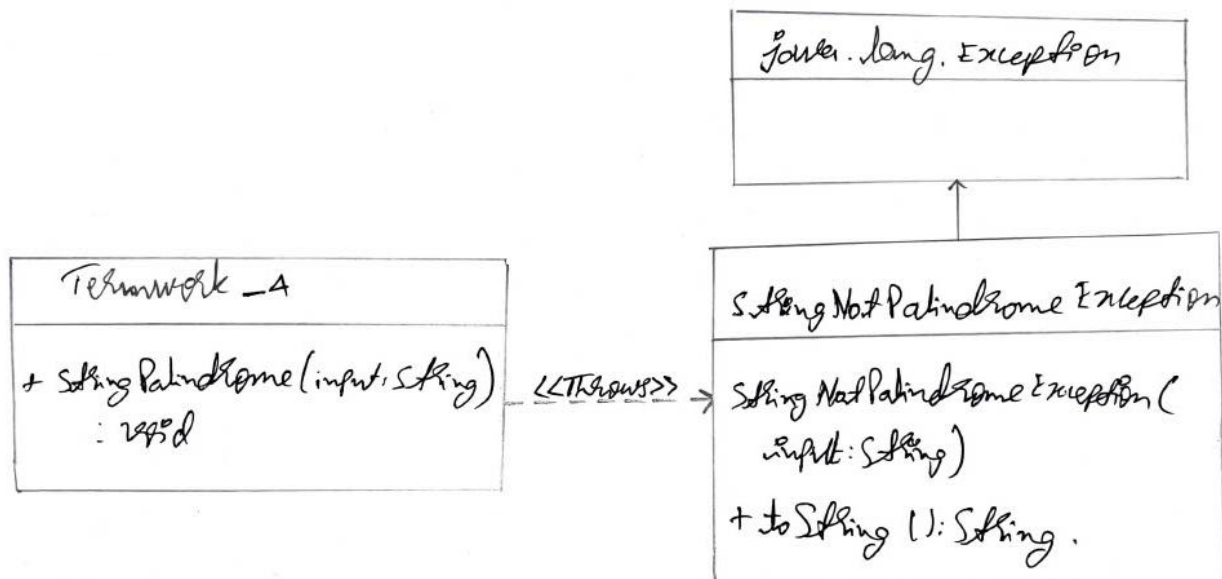 java.lang.Exception
Teamwork_4
+ StringPalindrome(input: String)
: void
<<Throws>>
StringNotPalindromeException
StringNotPalindromeException(
input: String)
+ toString (): String.